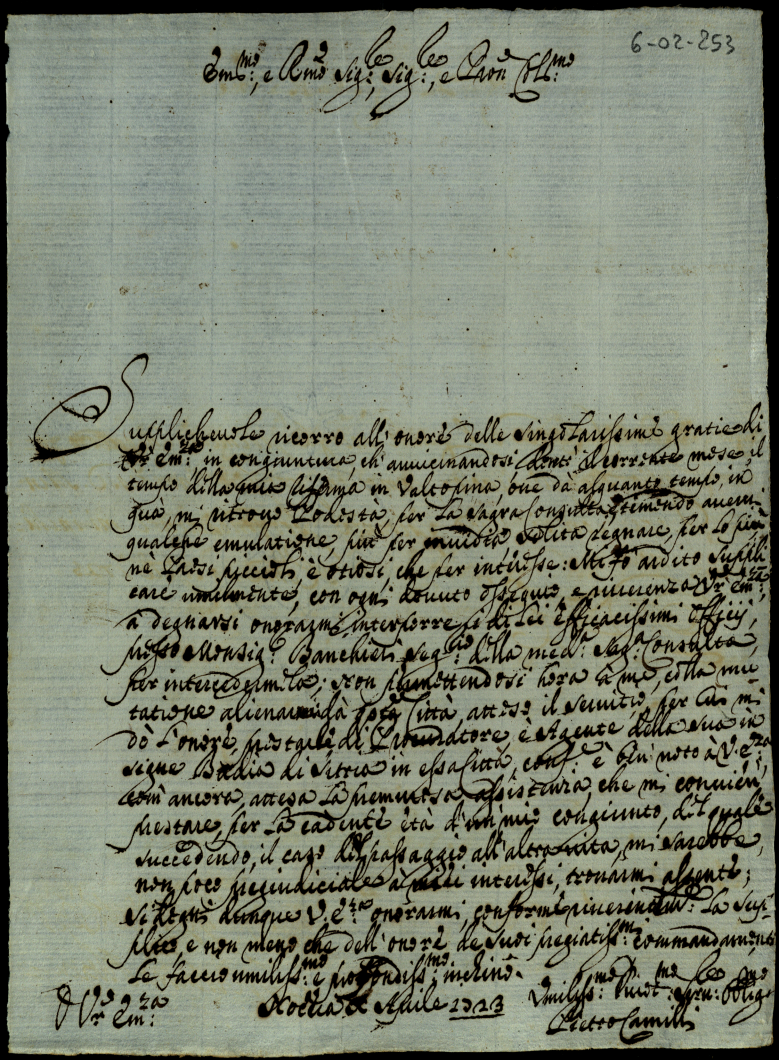 6-02-253
Em:mo, e Rmo Sig:le, Sig:le, e Pron Col:mo
Supplichevole ricorro all' onore delle singolarissime gratie di
Vr'a Em:za in congiuntura, ch' avvicinandosi dent' il corrente mese, il
tempo della mia in Valtopina, ove da alquanto tempo, in
quà, mi ritrovo Podestà, per la Sagra Consulta, e temendo avervi
qualche emulatione, più per invidia solita regnare, per lo più
ne Paesi piccioli, è otiosi, che per interesse: Mi fò ardito suppli
care umilmente, con ogni dovuto ossequio, e riverenza Vr'a Em:za,
à degnarsi onorarmi interporre i di Lei efficacissimi Officij,
presso Monsig:r Banchieri Seg:rio della med:a Sag:a Consulta,
per intercedermila; Non permettendosi hora à me, colla mu
tatione da Città, atteso il servitio, per cui mi
dò l'onore, prestarle di Procuratore, è Agente della sua in
signe Badia di Sitria in essa Città, conf:e è ben noto à V. E:za,
com' ancora, attesa la premurosa assistenza, che mi convien
prestare, per la cadente età d'un mio congiunto, del quale
succedendo, il caso del passaggio all' altra vita, mi sarebbe,
non poco pregiudiciale à miei interessi, trovarmi absente;
Si degni dunque V. E:za onorarmi, conforme riverentem:e La sup
plico, e non meno che dell' onore de suoi pregiatiss:mi commandamenti
Le faccio umiliss:mo e profondiss:mo inchino.
D Vr'a Em:za
Aprile 1723
Umiliss:mo Divot:mo Serv:le Obligo:mo
Pietro Camilli